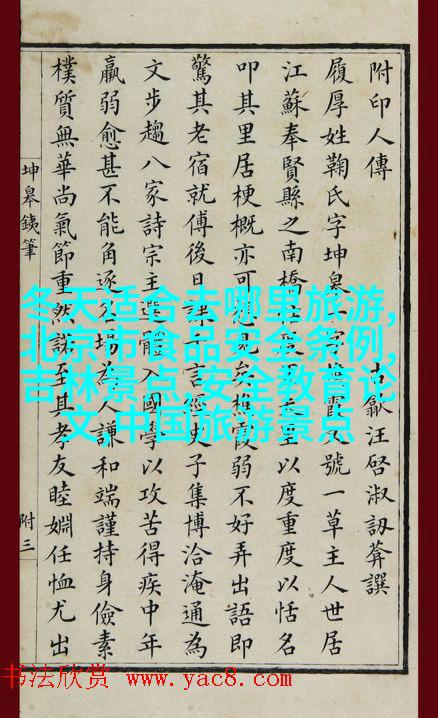 附印人傳 古歙汪啓淑訒葊譔
履厚姓鞠氏字坤皋一字樵霞號一草主人世居
江蘇奉賢縣之南橋以度重度以恬名
叩其里居梗概亦可想見矣樵霞弱不好弄出語即
驚其老宿就傅後日課千言經史子集博洽淹通為
文步趨八家詩宗主選體入國學以攻苦得疾中年
羸弱愈甚不能角逐名場為人謙和端謹持身儉素
樸質無華尚氣節重然諾至其孝友睦婣任恤尤出
坤皋鐵筆
附三
冬天适合去哪里旅游,
北京市食品安全条例,
吉林景点,安全教育论
文,中国旅游景点
书法欣赏 www.yac8.com